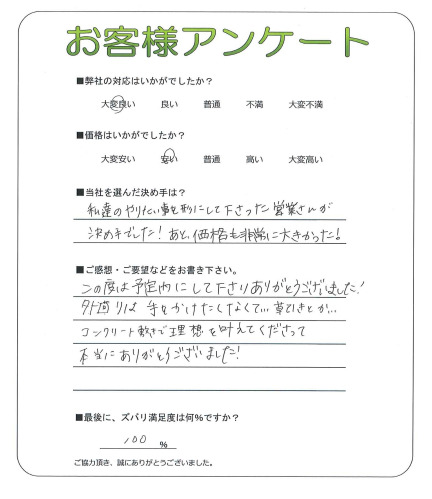 お客様アンケート
■弊社の対応はいかがでしたか？
大変良い 良い 普通 不満 大変不満
■価格はいかがでしたか？
大変安い 安い 普通 高い 大変高い
■当社を選んだ決め手は？
私達のやりたい事を形にして下さった営業さんが
決め手でした！あと、価格も非常に大きかった！
■ご感想・ご要望などをお書き下さい。
この度は予定内にして下さりありがとうございました！
外回りは手をかけたくなくて…草ひきとか…
コンクリート敷きで理想を叶えてくださって
本当にありがとうございました！
■最後に、ズバリ満足度は何%ですか？
100 %
ご協力頂き、誠にありがとうございました。